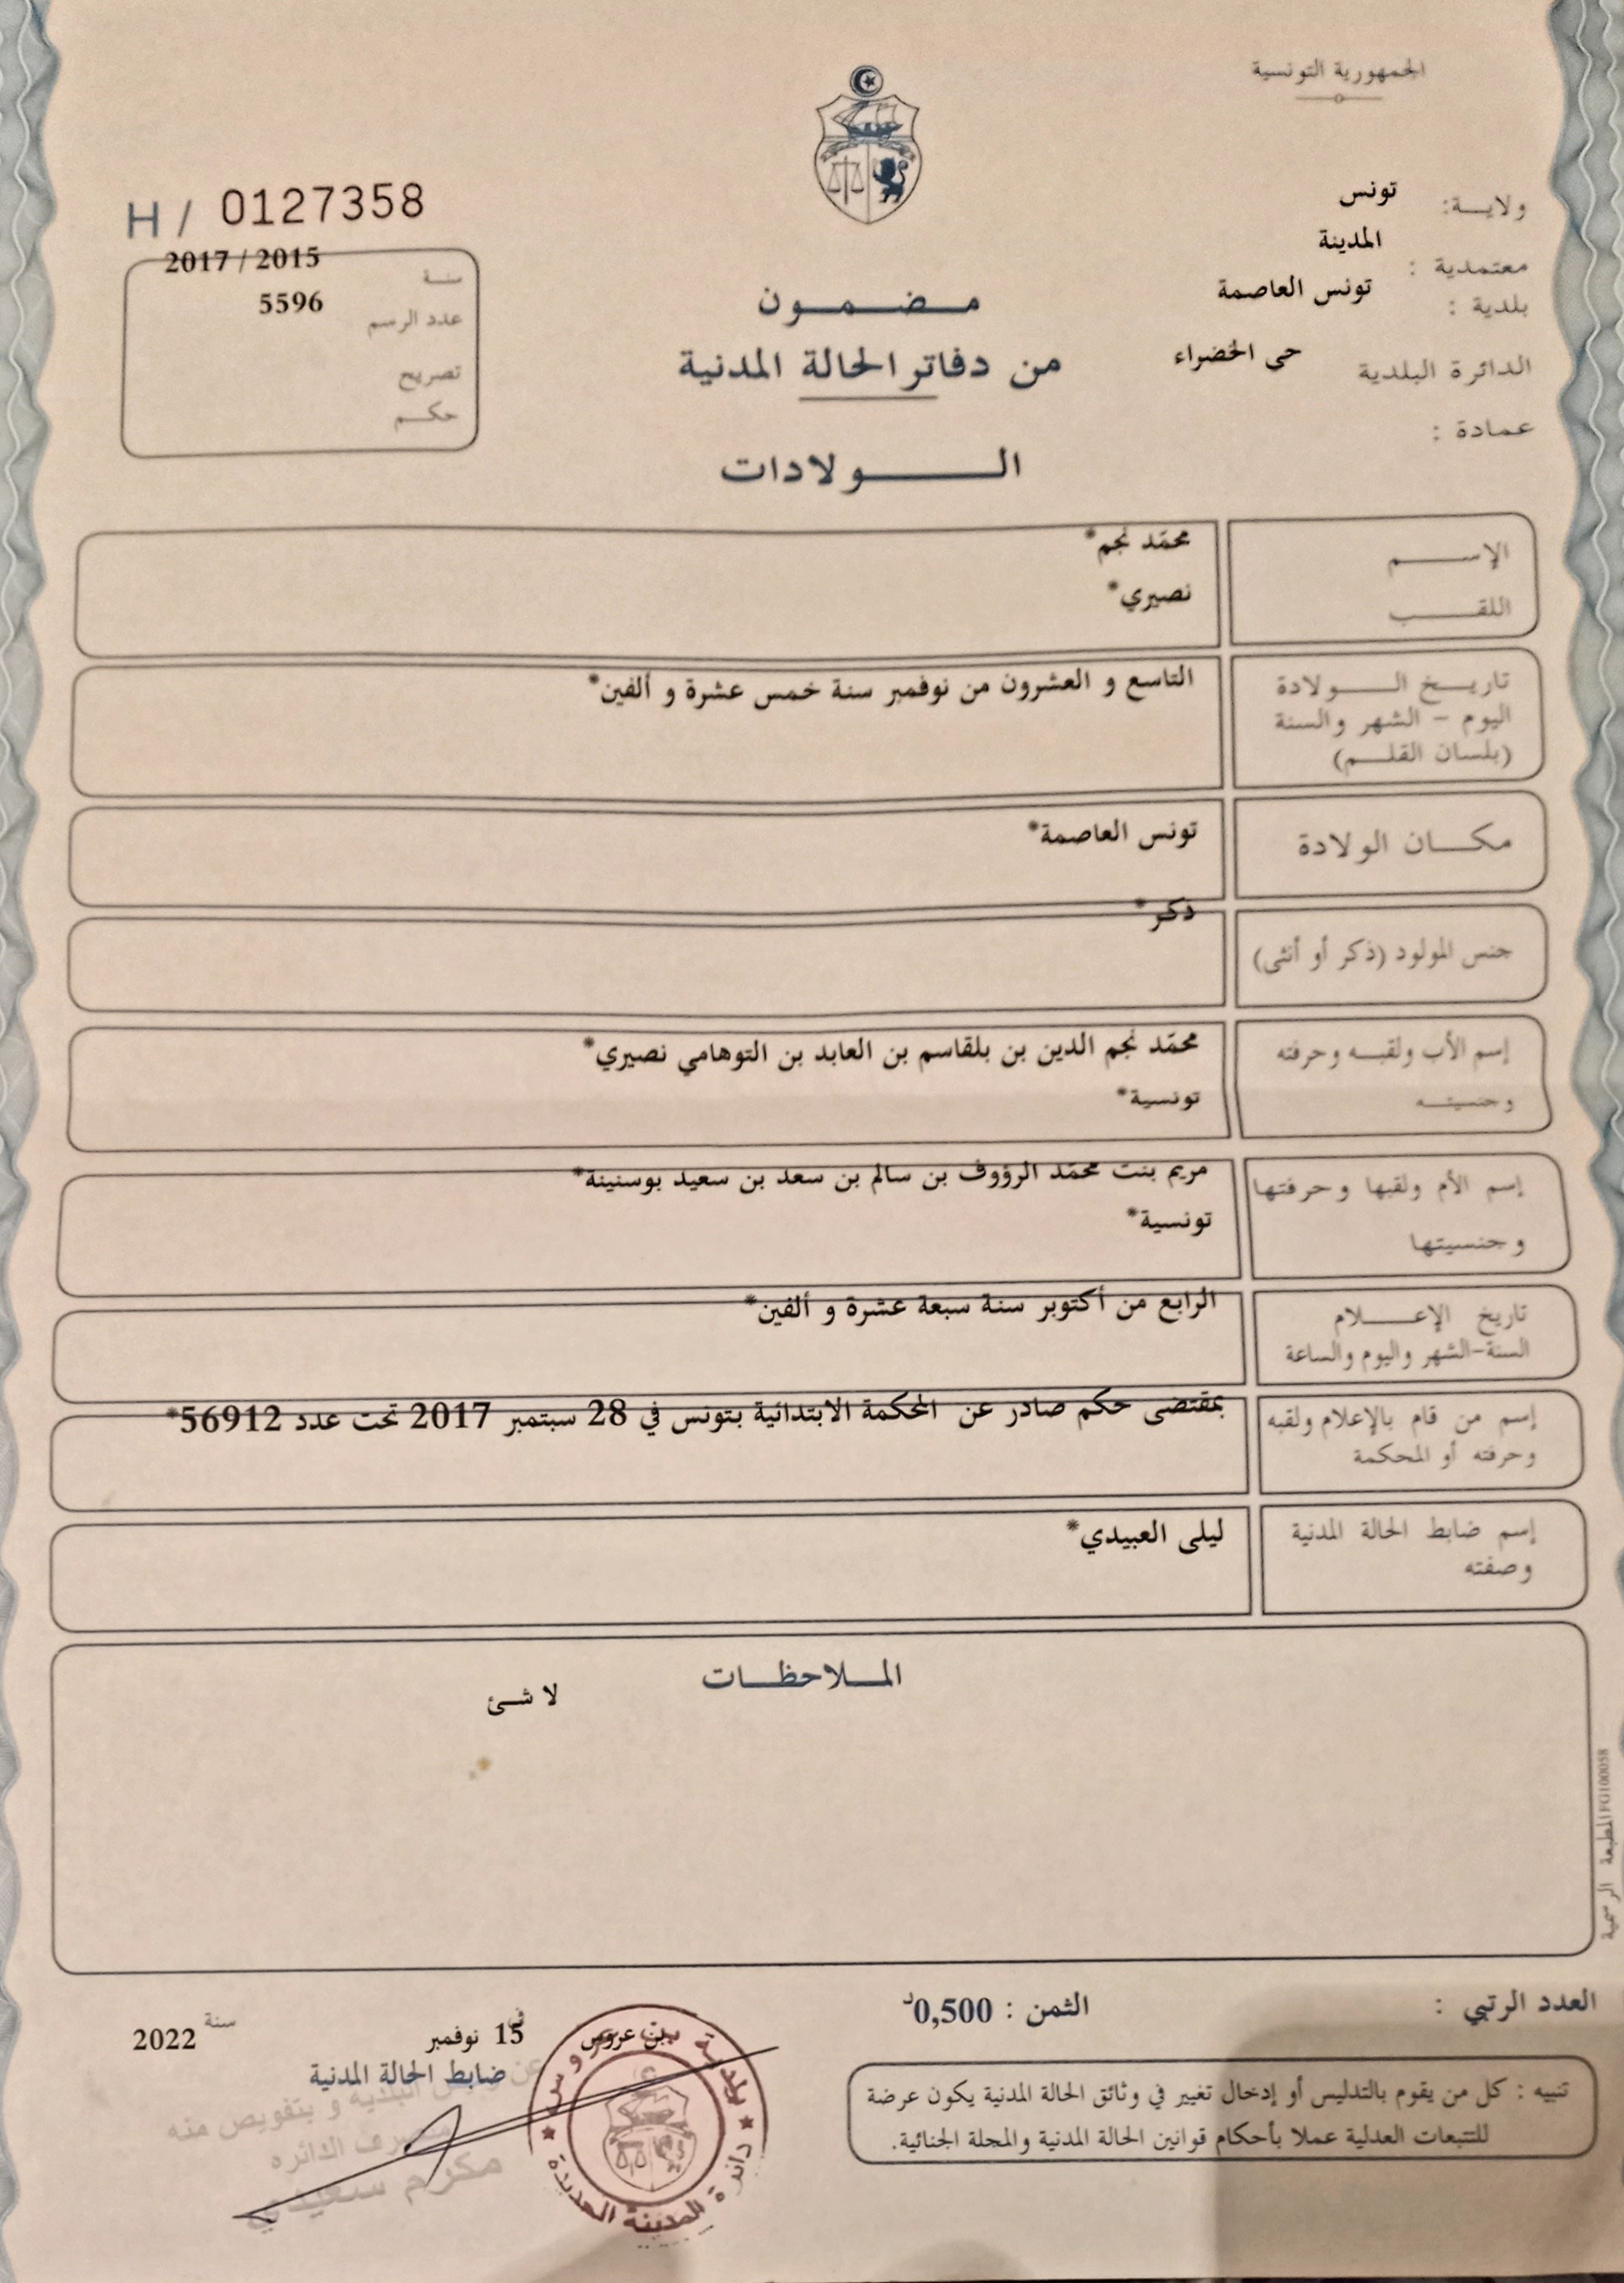 الجمهورية التونسية
ولايـــة: تونس
معتمدية : المدينة
بلدية : تونس العاصمة
الدائرة البلدية حى الخضراء
عمادة :
H / 0127358
سنـة 2017 / 2015
عدد الرسم 5596
تصريح
حكـم
مـضـمـون
من دفاتر الحالة المدنية
الـــولادات
الإســـم محمّد نجم*
اللقـــب نصيري*
تاريـــخ الـــولادة التاسع و العشرون من نوفمبر سنة خمس عشرة و ألفين*
اليوم - الشهر والسنة
(بلسان القلـــم)
مكـــان الولادة تونس العاصمة*
جنس المولود (ذكر أو أنثى) ذكر*
إسم الأب ولقبـــه وحرفته محمّد نجم الدين بن بلقاسم بن العابد بن التوهامي نصيري*
وجنسيتـــه تونسية*
إسم الأم ولقبها وحرفتها مريم بنت محمّد الرؤوف بن سالم بن سعد بن سعيد بوسنينة*
وجنسيتها تونسية*
تاريخ الإعـــلام الرابع من أكتوبر سنة سبعة عشرة و ألفين*
السنة-الشهر واليوم والساعة
إسم من قام بالإعلام ولقبه بمقتضى حكم صادر عن المحكمة الابتدائية بتونس في 28 سبتمبر 2017 تحت عدد 56912*
وحرفته أو المحكمة
إسم ضابط الحالة المدنية ليلى العبيدي*
وصفته
الملاحظـــات
لا شئ
المطبعة الرسمية FG100058
العدد الرتبي :
الثمن : 0,500د
بن عروس في 15 نوفمبر سنة 2022
ضابط الحالة المدنية
البلدية و بتفويض منه
الدائرة
مكرم سعيدي
بلدية بن عروس
دائرة المدينة الجديدة
تنبيه : كل من يقوم بالتدليس أو إدخال تغيير في وثائق الحالة المدنية يكون عرضة
للتتبعات العدلية عملا بأحكام قوانين الحالة المدنية والمجلة الجنائية.